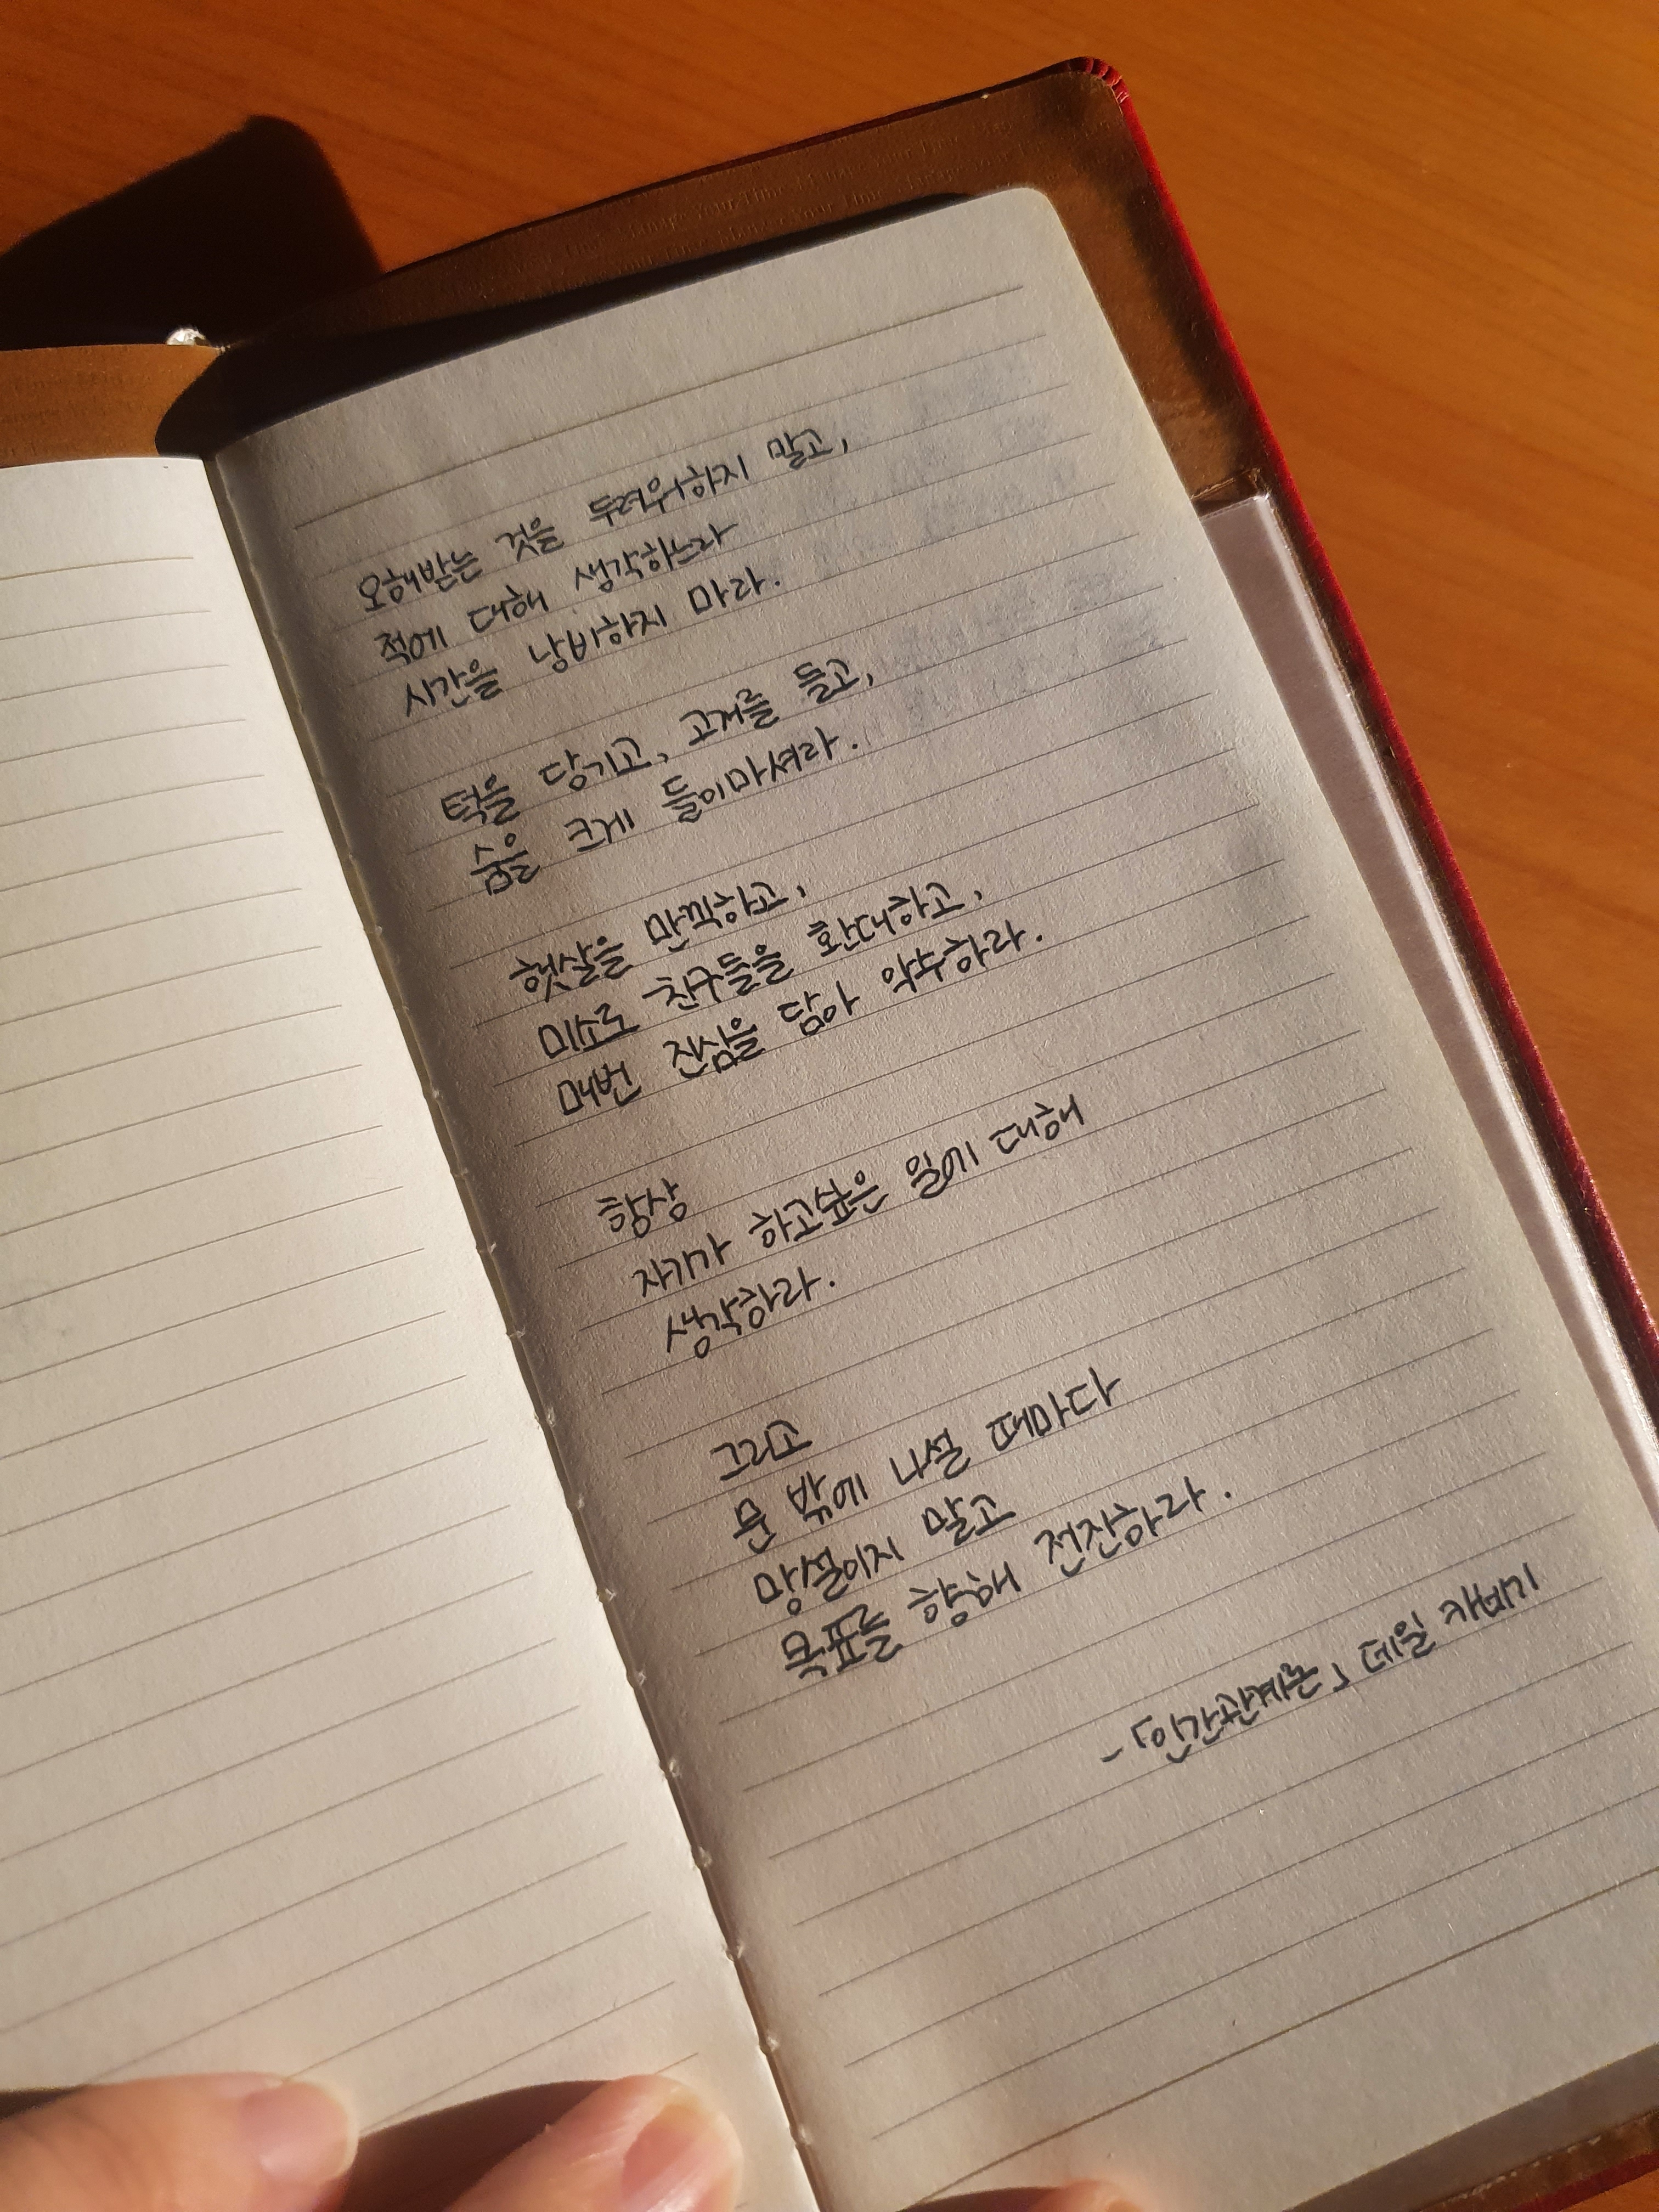 오해받는 것을 두려워하지 말고,
적에 대해 생각하느라
시간을 낭비하지 마라.
턱을 당기고, 고개를 들고,
숨을 크게 들이마셔라.
햇살을 만끽하고,
미소로 친구들을 환대하고,
매번 진심을 담아 악수하라.
항상
자기가 하고싶은 일에 대해
생각하라.
그리고
문 밖에 나설 때마다
망설이지 말고
목표를 향해 전진하라.
-「인간관계론」 데일 카네기